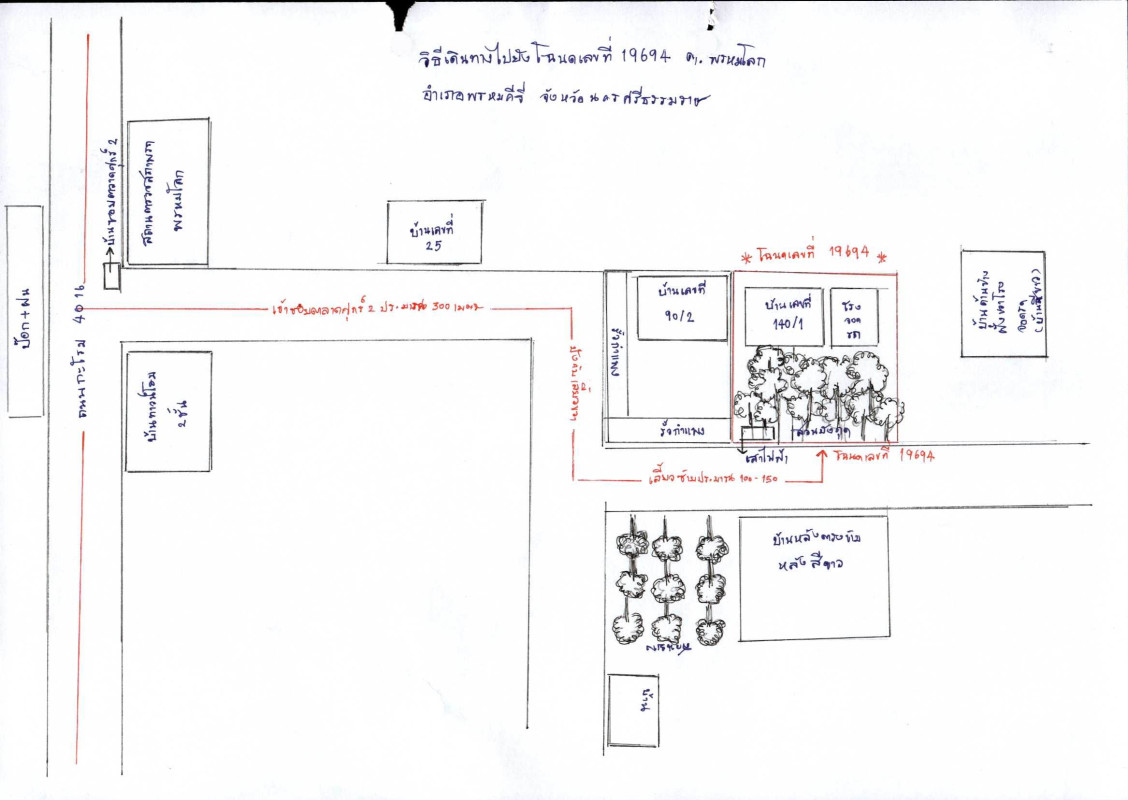 วิธีเดินทางไปยังโฉนดเลขที่ 19694 ต. พรหมโลก
อำเภอพรหมคีรี จังหวัดนครศรีธรรมราช
ป๊อก+ฝน
ถนนกะโรม 4016
สถานีตำรวจ
พรหมโลก
บ้านเลขที่
25
* โฉนดเลขที่ 19694 *
บ้านเลขที่
90/2
บ้านเลขที่
140/1
โรง
จอด
รถ
บ้านด้านข้าง
จอดรถ
(บ้านสีเขียว)
เข้าซอยตลาดศุกร์ 2 ประมาณ 300 เมตร
รั้วกำแพง
2 ชั้น
รั้วกำแพง
สวนมังคุด
เสาไฟฟ้า
โฉนดเลขที่ 19694
เลี้ยวซ้ายประมาณ 100 - 150
บ้านหลังตรงข้าม
หลังสีขาว
บ้าน